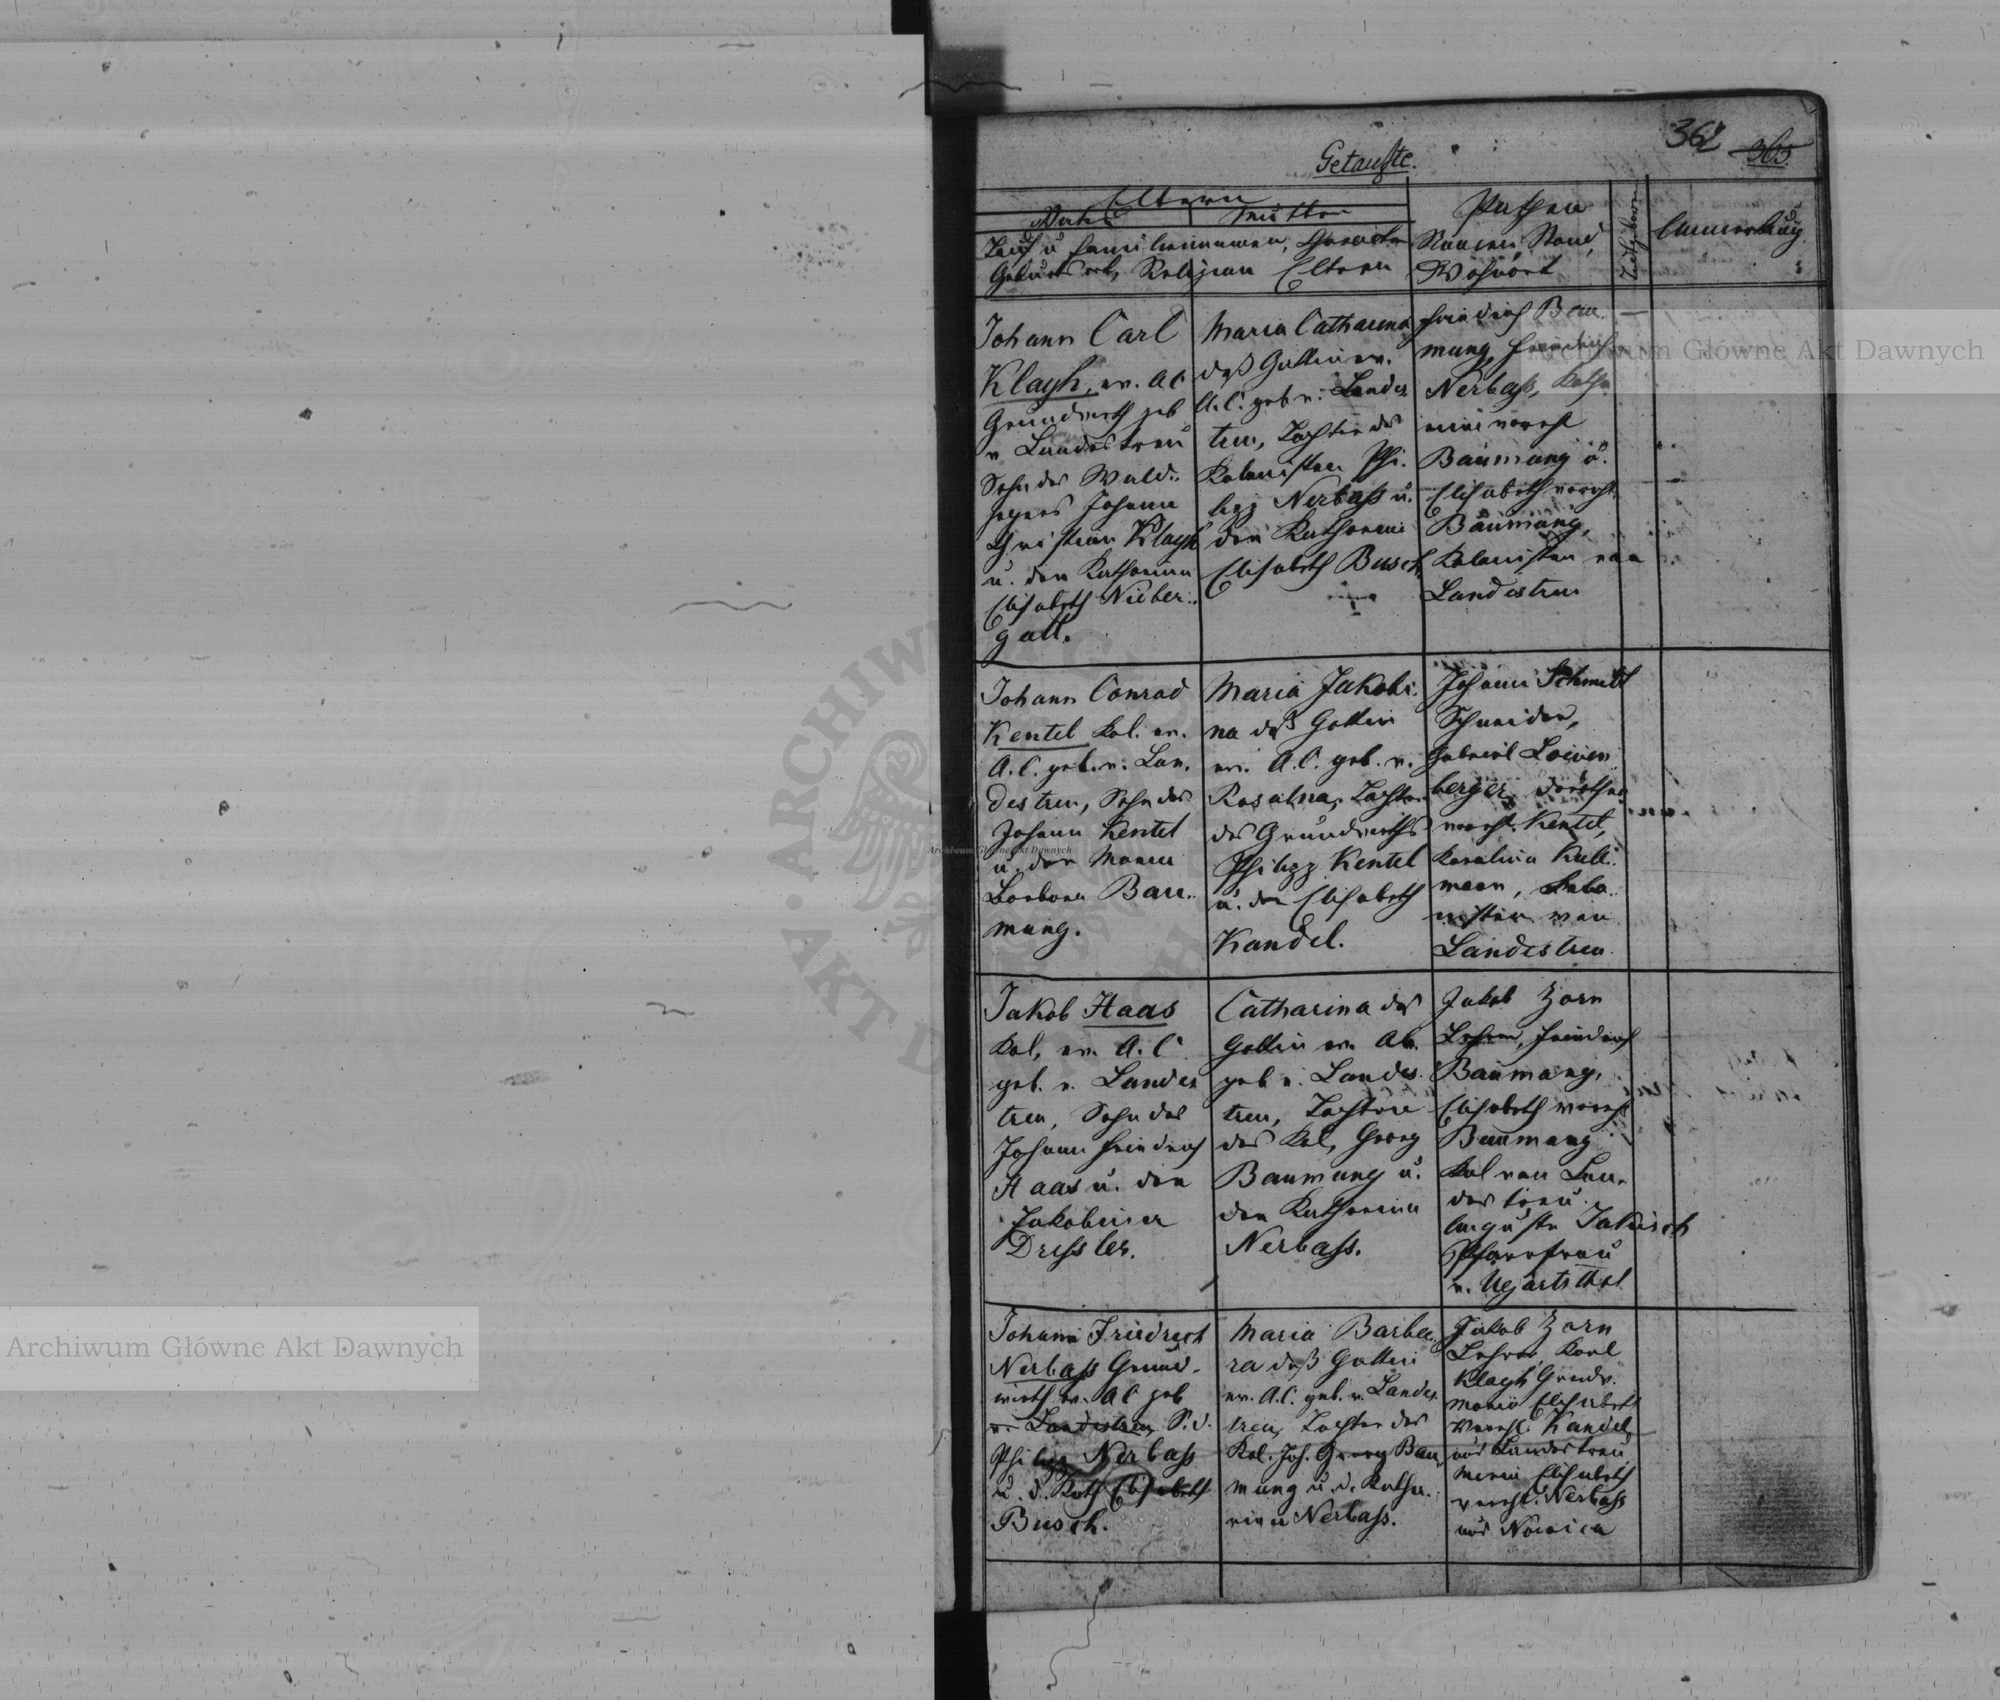 362
365.
Getaufte.
Eltern
Vater
Mutter
Tauf u Familiennamen, Charakter
Geburtsort, Religion Eltern
Pathen
Namen, Stand,
Wohnort
Anmerkung
Johann Carl
Klagh, ev. A C
Grundwirth geb
v. Landestreu
Sohn des Wald-
hegers Johann
Christian Klagh
u. der Katharina
Elisabeth Nieber-
gall.
Maria Catharina
deß Gattin ev.
A. C. geb. v. Landes
treu, Tochter des
Kolonisten Phi-
lipp Nerbaß u.
der Katharine
Elisabeth Busch
Friedrich Bau
mung, Friedrich
Nerbaß, Katha
rine vereh
Baumung u.
Elisabeth vereh.
Baumung,
Kolonisten von
Landestreu
Johann Conrad
Kentel Kol. ev.
A. C. geb. v. Lan-
destreu, Sohn des
Johann Kentel
u. der Maria
Barbara Bau-
mung.
Maria Jakobi-
na deß Gattin
ev. A. C. geb. v.
Tochter
des Grundwirths
Philipp Kentel
u. der Elisabeth
Kandel.
Johann Schmidt
Schneider,
Gabriel
berger, Dorothea
vereh. Kentel,
mann, Kolo-
nisten von
Landestreu
Jakob Haas
Kol. ev. A. C
geb. v. Landes
treu, Sohn des
Johann Friedrich
Haas u. der
Jakobina
Dressler.
Catharina des
Gattin ev. A.
geb v. Landes
treu, Tochter
des Kol. Georg
Baumung u.
der Katharina
Nerbaß.
Jakob Zorn
Lehrer, Friedrich
Baumung,
Elisabeth vereh
Baumung
Kol von Lan-
des treu.
Auguste
Pfarrfrau
v. Ugartsthal
Johann Friedrich
Nerbaß Grund-
wirth ev. AC geb
v. Landestreu S. d.
Philipp Nerbass
u. d. Kath Elisabeth
Busch.
Maria Barba-
ra deß Gattin
ev. A. C. geb. v. Landes
treu, Tochter des
Kol. Joh. Georg Bau
mung u. d. Katha-
rina Nerbaß.
Jakob Zorn
Lehrer, Karl
Klagh Grundw.
Maria Elisabeth
vereh. Kandel,
aus Landestreu
Maria Elisabeth
vereh. Nerbass
aus Nowica
Archiwum Główne Akt Dawnych
Archiwum Główne Akt Dawnych
Archiwum Główne Akt Dawnych